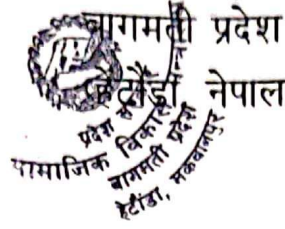 बागमती प्रदेश
हेटौंडा नेपाल
सामाजिक विकास
बागमती प्रदेश
हेटौंडा, मकवानपुर